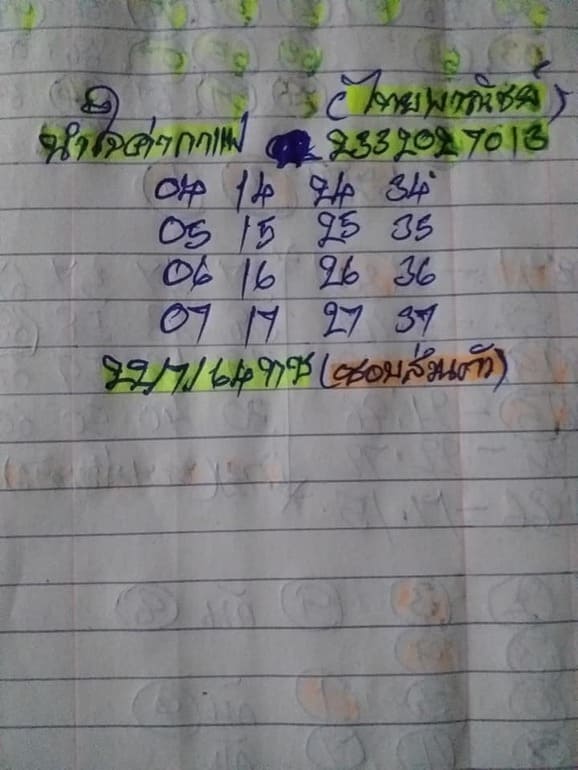 (ไทยพาณิชย์)
น้ำใจค่ากาแฟ 2332027013
04 14 24 34
05 15 25 35
06 16 26 36
07 17 27 37
22/7/64 (ชอบส่วนตัว)